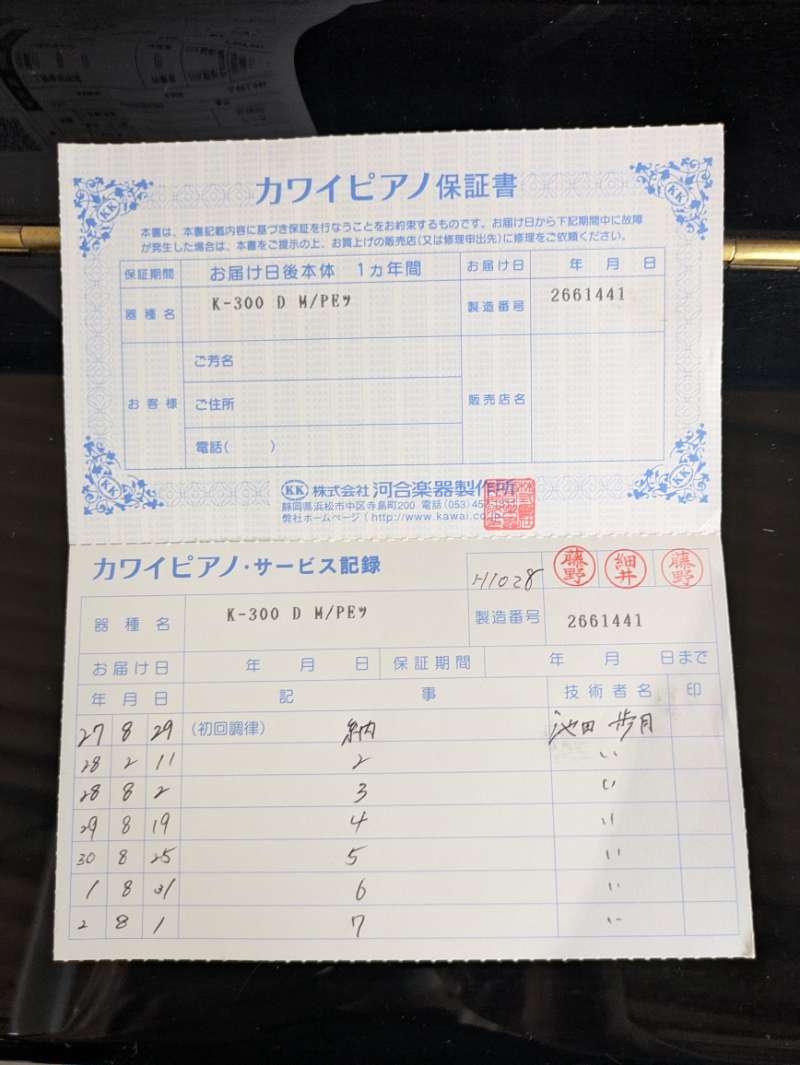 カワイピアノ保証書
本書は、本書記載内容に基づき保証を行なうことをお約束するものです。お届け日から下記期間中に故障
が発生した場合は、本書をご提示の上、お買上げの販売店(又は修理申出先)に修理をご依頼ください。
保証期間 お届け日後本体 1ヵ年間 お届け日 年 月 日
器種名 K-300 D M/PEツ 製造番号 2661441
お客様 ご芳名
ご住所 販売店名
電話( )
KK 株式会社 河合楽器製作所
静岡県浜松市中区寺島町200 電話(053)
弊社ホームページ(http://www.kawai.co.jp
カワイピアノ・サービス記録
H1028 藤野 細井 藤野
器種名 K-300 D M/PEツ 製造番号 2661441
お届け日 年 月 日 保証期間 年 月 日まで
年 月 日 記事 技術者名 印
27 8 29 (初回調律) 納 池田 歩月
28 2 11 2 〃
28 8 2 3 〃
29 8 19 4 〃
30 8 25 5 〃
1 8 31 6 〃
2 8 1 7 〃